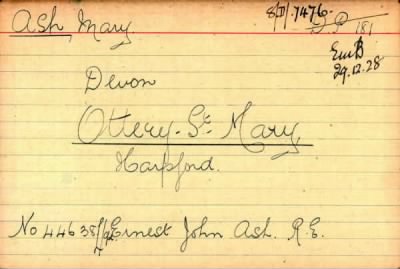 Ash, Mary
8/D/.7476.
D.P 181
EmB
29.12.28
Devon
Ottery-St Mary
Harpford.
No 44638 Ernest John Ash. R.E.